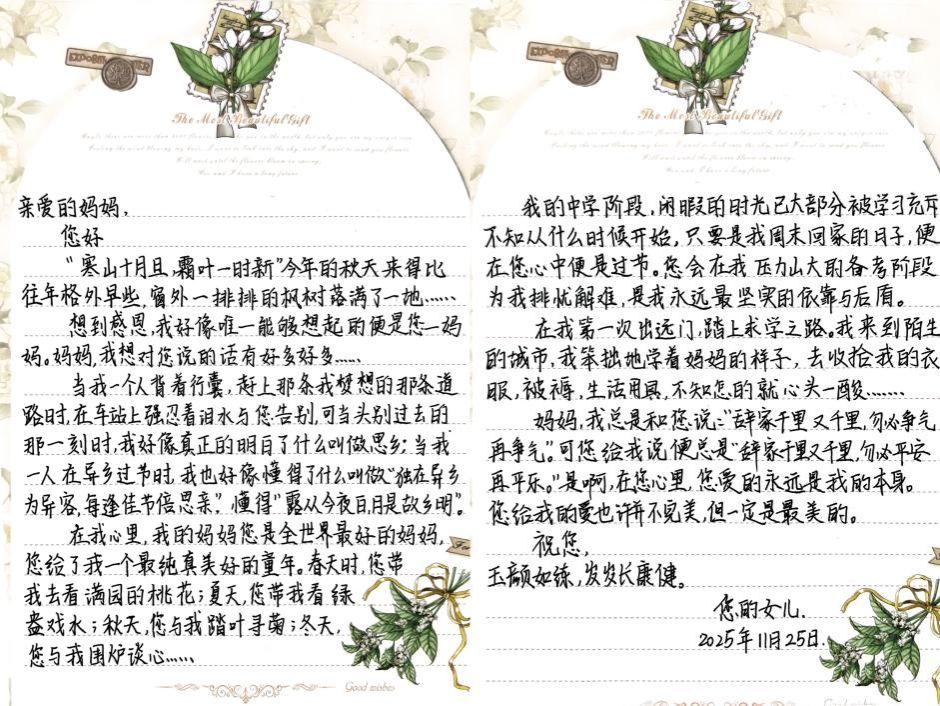 The Most Beautiful Gift
亲爱的妈妈，
您好
“寒山十月旦，霜叶一时新”今年的秋天来得比
往年格外早些，窗外一排排的枫树落满了一地……
想到感恩，我好像唯一能够想起的便是您—妈
妈。妈妈，我想对您说的话有好多好多……
当我一个人背着行囊，赶上那条我梦想的那条道
路时，在车站上强忍着泪水与您告别，可当头别过去的
那一刻时，我好像真正的明白了什么叫做思乡；当我
一人在异乡过节时，我也好像懂得了什么叫做“独在异乡
为异客，每逢佳节倍思亲”，懂得“露从今夜白，月是故乡明”。
在我心里，我的妈妈您是全世界最好的妈妈，
您给了我一个最纯真美好的童年。春天时，您带
我去看满园的桃花；夏天，您带我看绿
盎戏水；秋天，您与我踏叶寻菊；冬天，
您与我围炉谈心……
Good wishes
The Most Beautiful Gift
我的中学阶段，闲暇的时光已大部分被学习充斥
不知从什么时候开始，只要是我周末回家的日子，便
在您心中便是过节。您会在我压力山大的备考阶段
为我排忧解难，是我永远最坚实的依靠与后盾。
在我第一次出远门，踏上求学之路。我来到陌生
的城市，我笨拙地学着妈妈的样子，去收拾我的衣
服，被褥，生活用具，不知怎的就心头一酸……
妈妈，我总是和您说：“辞家千里又千里，勿必争气
再争气。”可您给我说便总是“辞家千里又千里，勿必平安
再平乐。”是啊，在您心里，您爱的永远是我的本身。
您给我的爱也许并不完美，但一定是最美的。
祝您，
玉颜如练，岁岁长康健。
您的女儿.
2025年11月25日.